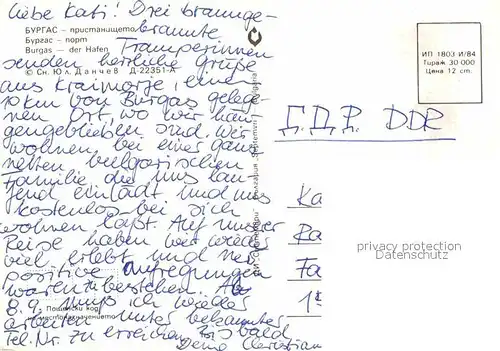 Liebe Kati! Drei braunge-
brannte
БУРГАС — пристанището
Бургас — порт
Burgas — der Hafen
Tramperinnen
senden herrliche Grüße
© Сн. Юл. Данчев Д-22351-А
aus Kraimorje, einem
10 km von Burgas geleg-
nen Ort, wo wir hän-
gengeblieben sind. Wir
wohnen bei einer ganz
netten bulgarischen
Familie die uns lau-
fend einlädt und uns
kostenlos bei sich
wohnen läßt. Auf unserer
Reise haben wir wieder
viel erlebt und nur
positive Aufregungen
waren zu bestehen. Ab
8.9. muß ich wieder
Пощенски код
на местоназначението
arbeiten unter bekannter
Tel. Nr. zu erreichen. Bis bald
Deine Christian
ИП 1803 И/84
Тираж 30 000
Цена 12 ст.
Г.Д.Р. DDR
Ka
Ra
Fa
privacy protection
Datenschutz